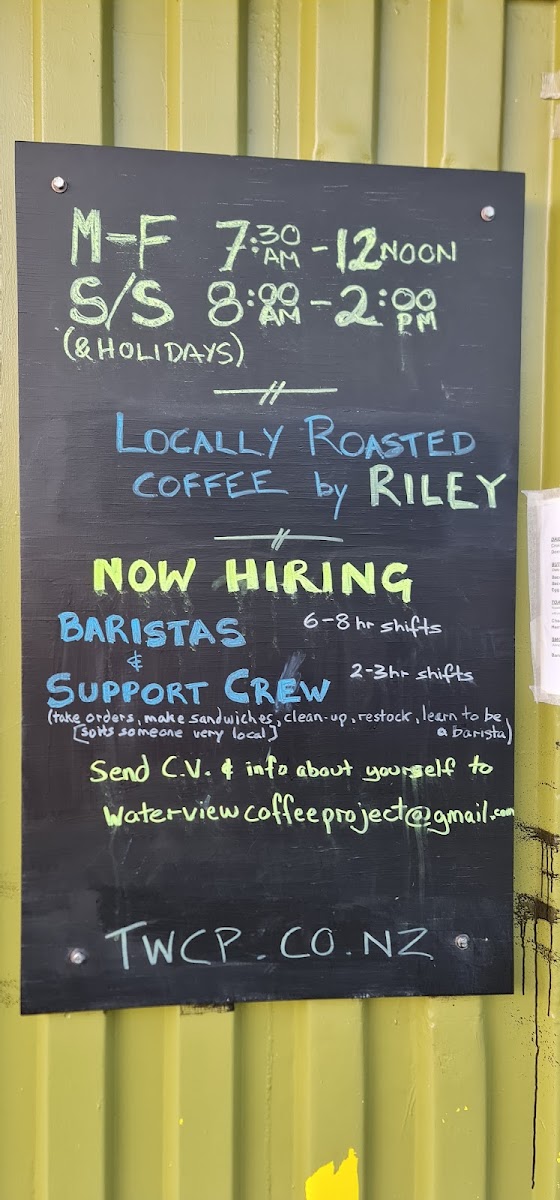 M-F 7:30 AM - 12 NOON
S/S 8:00 AM - 2:00 PM
(& HOLIDAYS)
LOCALLY ROASTED
COFFEE by RILEY
NOW HIRING
BARISTAS 6-8 hr shifts
&
SUPPORT CREW 2-3hr shifts
(take orders, make sandwiches, clean-up, restock, learn to be
[suits someone very local] a barista)
Send C.V. & info about yourself to
waterviewcoffeeproject@gmail.com
TWCP.CO.NZ